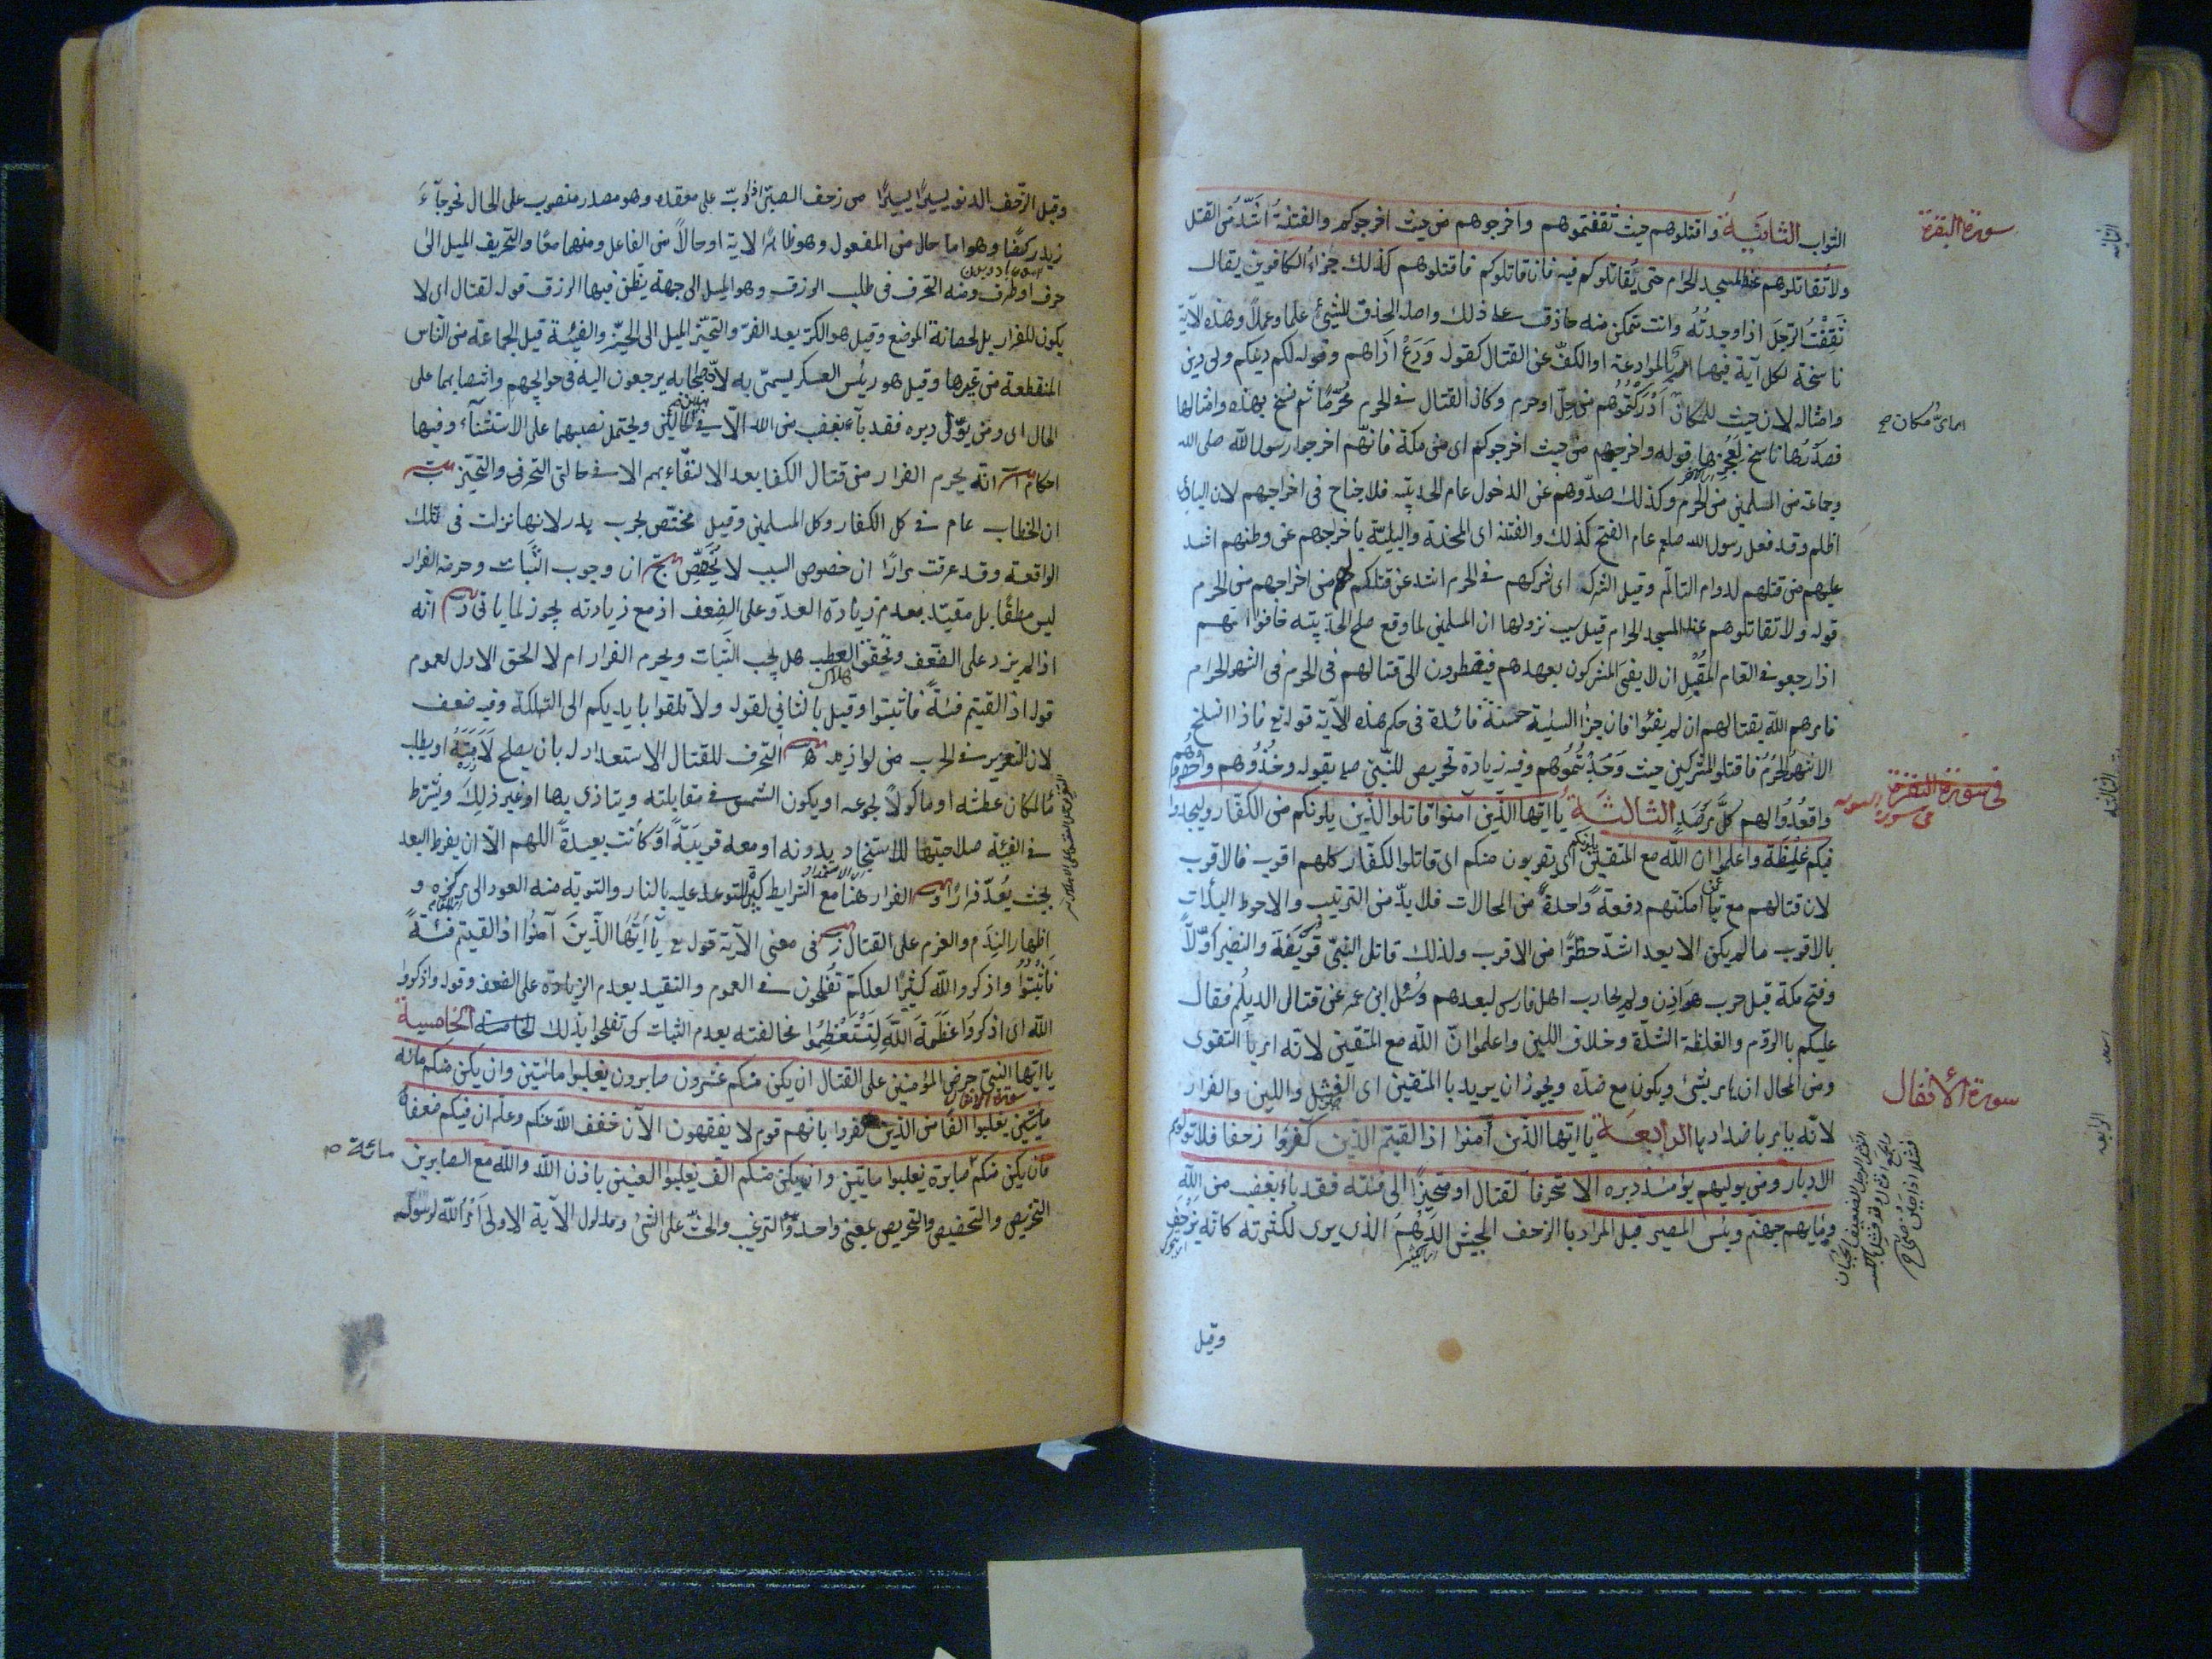 سورة البقرة
الثواب الثانية واقتلوهم حيث ثقفتموهم واخرجوهم من حيث اخرجوكم والفتنة اشد من القتل
ولا تقاتلوهم عند المسجد الحرام حتى يقاتلوكم فيه فان قاتلوكم فاقتلوهم كذلك جزاء الكافرين يقال
ثقفت الرجل اذا وجدته وانت تتمكن منه حاذق على ذلك واصله الحذق للشيئ علما وعملا وهذه الآية
ناسخة لكل آية فيها امر بالموادعة او الكف عن القتال كقوله ودع اذاهم وقوله لكم دينكم ولى دين
وامثاله لان حيث للمكان ادركتموهم من حل او حرم وكان القتال فى الحرم محرما ثم نسخ بهذه وامثالها
اى اىّ مكان صح
فصدرها ناسخ لعجزها قوله واخرجوهم من حيث اخرجوكم اى من مكة فانهم اخرجوا رسول الله صلى الله
وجماعة من المسلمين من الحرم وكذلك صدوهم عن الدخول عام الحديبية فلا جناح فى اخراجهم لان البادى
اظلم وقد فعل رسول الله صلعم عام الفتح كذلك والفتنة اى المحنة والبلية باخراجهم عن وطنهم اشد
عليهم من قتلهم لدوام التالم وقيل الشرك اى شركهم فى الحرم اشد عن قتلكم لهم من اخراجهم من الحرم
قوله ولا تقاتلوهم عند المسجد الحرام قيل سبب نزولها ان المسلمين لما وقع صلح الحديبية خافوا انهم
اذا رجعوا فى العام المقبل ان لا يفى المشركون بعهدهم فيضطرون الى قتالهم فى الحرم فى الشهر الحرام
فامرهم الله بقتالهم ان لم يفئوا فان جزاء السيئة حسنة فائدة فى حكم هذه الآية قوله تع فاذا انسلخ
الاشهر الحرم فاقتلوا المشركين حيث وجدتموهم وفيه زيادة تحريص للنبى صلعم بقوله وخذوهم واحصروهم
فى سورة البقرة
واقعدوا لهم كل مرصد الثالثة يا ايها الذين آمنوا قاتلوا الذين يلونكم من الكفار وليجدوا
فيكم غلظة واعلموا ان الله مع المتقين اى يقربون منكم اى قاتلوا الكفار كلهم اقرب فالاقرب
لان قتالهم مع تباعد امكنتهم دفعة واحدة من المحالات فلا بد من الترتيب والاحوط البدأت
بالاقرب ما لم يكن الابعد اشد خطرا من الاقرب ولذلك قاتل النبى قريظة والنضير اولا
وفتح مكة قبل حرب هوازن ولم يحارب اهل فارس لبعدهم وسئل ابن عمر عن قتالى الديلم فقال
عليكم بالروم والغلظة الشدة وخلاف اللين واعلموا ان الله مع المتقين لانه امر بالتقوى
ومن المحال ان يامر بشئ ويكون مع ضده ويجوز ان يريد بالمتقين اى الفشل واللين والفرار
سورة الأنفال
لانه يامر باضدادها الرابعة يا ايها الذين آمنوا اذا لقيتم الذين كفروا زحفا فلا تولوهم
الادبار ومن يوليهم يومئذ دبره الا متحرفا لقتال او متحيزا الى فئة فقد باء بغضب من الله
وماويهم جهنم وبئس المصير قيل المراد بالزحف الجيش الدهم الذى يرى لكثرته كانه يزحف
وقيل
وقيل الزحف الدنو يسيرا يسيرا من زحف الصبى اذا دب على مقعده وهو مصدر منصوب على الحال نحو جاء
زيد ركضا وهو اما حال من المفعول وهو ظاهر الاية او حالا من الفاعل ومنهما معا والتحريف الميل الى
حرف او طرف ومنه التحرف فى طلب الرزق وهو الميل الى جهة يظن فيها الرزق قوله لقتال اى لا
يكون للفرار بل لحصانة الموضع وقيل هو الكر بعد الفر والتحيز الميل الى الحيز والفيئة قيل الجماعة من الناس
المنقطعة من غيرها وقيل هو رئيس العسكر يسمى به لان اصحابه يرجعون اليه فى حوائجهم وانتصابهما على
الحال اى ومن يولى دبره فقد باء بغضب من الله الا فى هاتين الحالتين ويحتمل نصبهما على الاستثناء وفيها
احكام انه يحرم الفرار من قتال الكفار بعد الالتقاء بهم الا فى حالتى التحرف والتحيز
ان الخطاب عام فى كل الكفار وكل المسلمين وقيل مختص بحرب بدر لانها نزلت فى تلك
الواقعة وقد عرفت مرارا ان خصوص السبب لا يخصص ان وجوب الثبات وحرمة الفرار
ليس مطلقا بل مقيد بعدم زيادة العدو على الضعف اذ مع زيادته يجوز لما ياتى انه
اذا لم يزد على الضعف وتحقق العطب هل يجب الثبات ويحرم الفرار ام لا الحق الاول لعموم
هلاك
قوله اذا لقيتم فئة فاثبتوا وقيل بالثانى لقوله ولا تلقوا بايديكم الى التهلكة وفيه ضعف
لان التغرير فى الحرب من لوازمه التحرف للقتال الاستعداد له بان يصلح لامته او يطلب
مأ لمكان عطشه او ماكولا لجوعه او يكون الشمس فى مقابلته ويتاذى بها او غير ذلك ويشترط
فى الفيئة صلاحيتها للاستنجاد بدونه او معه قريبة او كانت بعيدة اللهم الا ان يفرط البعد
بحيث يعد فرارا الفرار هنا مع الشرايط كبيرة للتوعد عليه بالنار والتوبة منه العود الى مركزه و
اظهار الندم والعزم على القتال فى معنى الآية قوله تع يا ايها الذين آمنوا اذا لقيتم فئة
فاثبتوا واذكروا الله كثيرا لعلكم تفلحون فى العموم والتقييد بعدم الزيادة على الضعف وقوله واذكروا
الله اى اذكروا عظمة الله لتستعظموا مخالفته بعدم الثبات كى تفلحوا بذلك الخامسة الخامسة
يا ايها النبى حرض المؤمنين على القتال ان يكن منكم عشرون صابرون يغلبوا مائتين وان يكن منكم مائة
سورة الانفال
مائتين يغلبوا الفا من الذين كفروا بانهم قوم لا يفقهون الآن خفف الله عنكم وعلم ان فيكم ضعفا
فان يكن منكم صابرة يغلبوا مايتين وان يكن منكم الف يغلبوا الفين باذن الله والله مع الصابرين
مائة
التحريص والتحضيض والتحريص بمعنى واحد والترغيب والحث على الشئ ومدلول الآية الاولى امر الله لرسوله